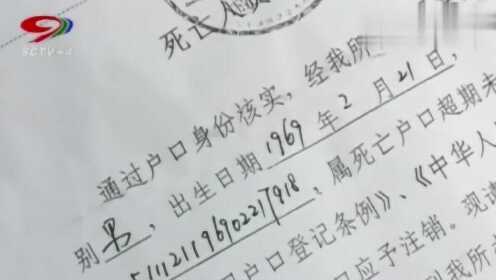 SCTV-4
死亡人员
通过户口身份核实，经我所
别男，出生日期1969年2月21日，
511121196902217918，属死亡户口超期未
户口登记条例》、《中华人
应予注销。现
我所